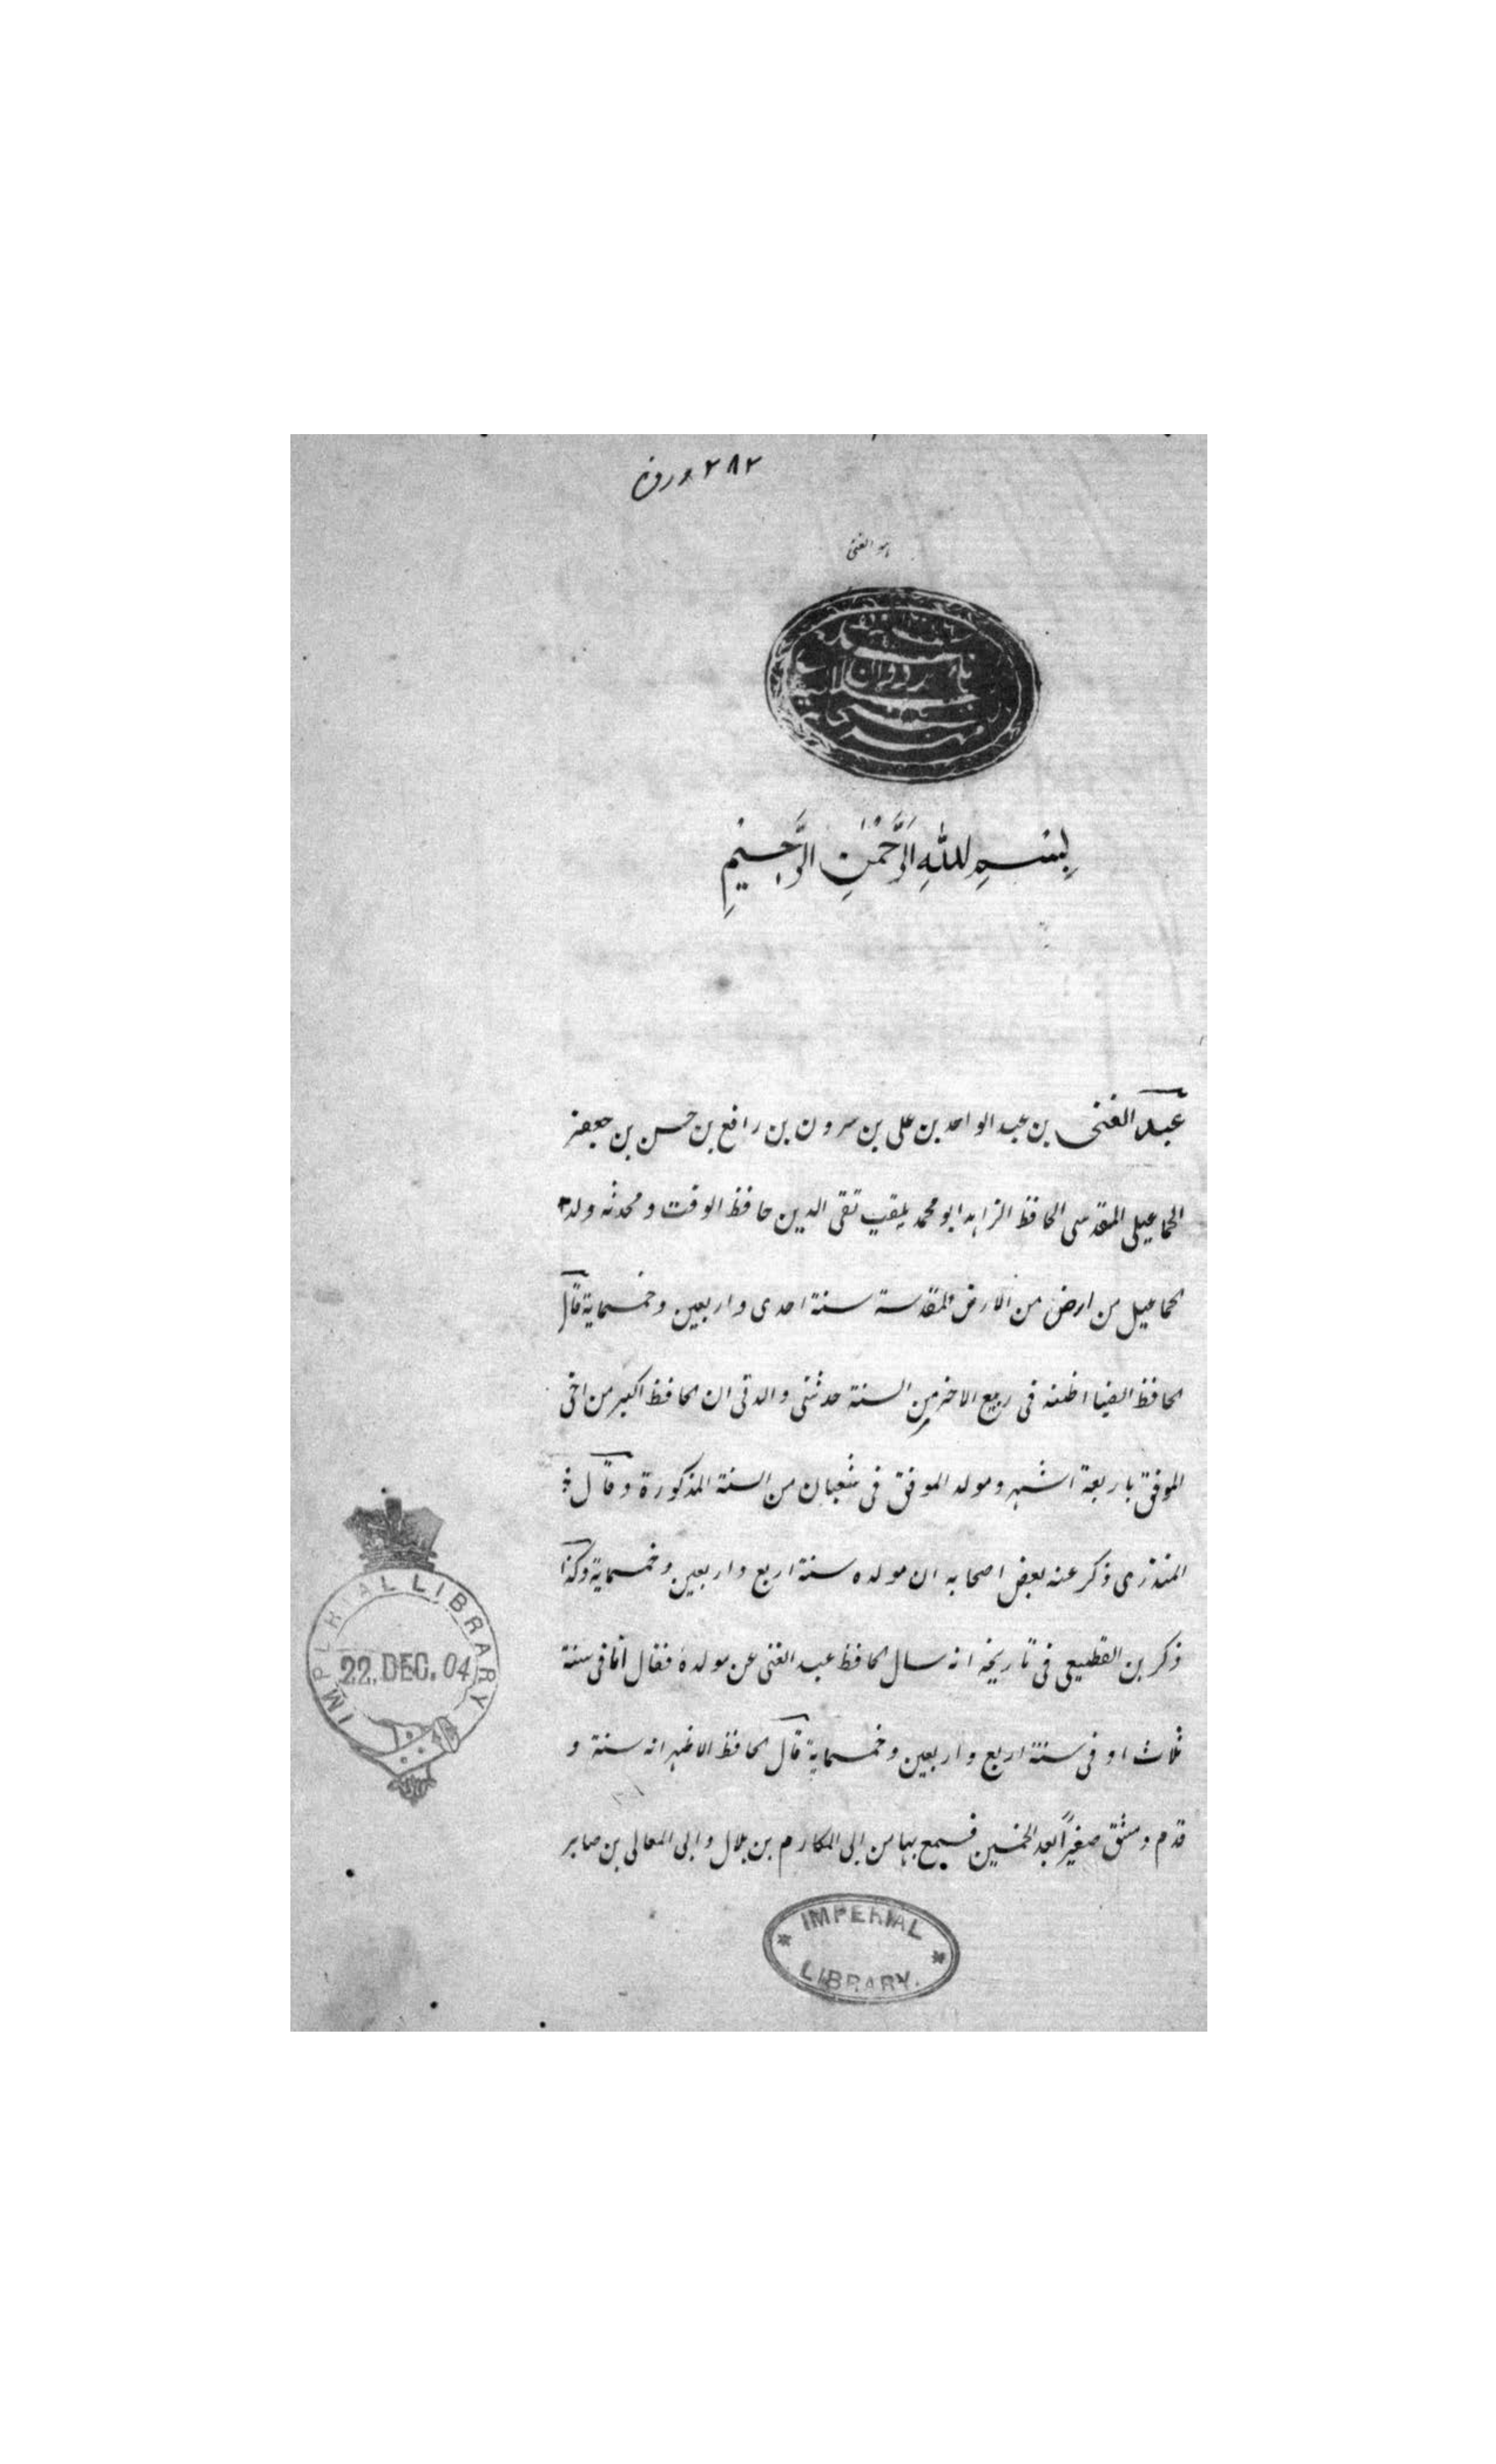 ٢٨٢ ورق
هو الغنى
بِسْمِ اللهِ الرَّحْمٰنِ الرَّحِيْمِ
عبد الغنى بن عبد الواحد بن على بن سرون بن رافع بن حسن بن جعفر
الجماعيلى المقدسى الحافظ الزاهد ابو محمد يلقب تقى الدين حافظ الوقت و محدثه ولد
بجماعيل من ارض من الارض المقدسة سنة احدى و اربعين و خمسماية قال
الحافظ الضيا اظنه فى ربيع الاخر من السنة حدثنى والدتى ان الحافظ اكبر من اخى
الموفق باربعة اشهر و مولد الموفق فى شعبان من السنة المذكورة و قال
المنذرى ذكر عنه بعض اصحابه ان مولده سنة اربع و اربعين و خمسماية وكذا
ذكر بن القطيعى فى تاريخه انه سال الحافظ عبد الغنى عن مولده فقال اما فى سنة
ثلاث او فى سنة اربع و اربعين و خمسماية قال الحافظ الاظهر انه سنة و
قدم دمشق صغيراً بعد الخمسين فسمع بها من ابى المكارم بن هلال و ابى المعالى بن صابر
IMPERIAL LIBRARY
22. DEC. 04
IMPERIAL
LIBRARY.